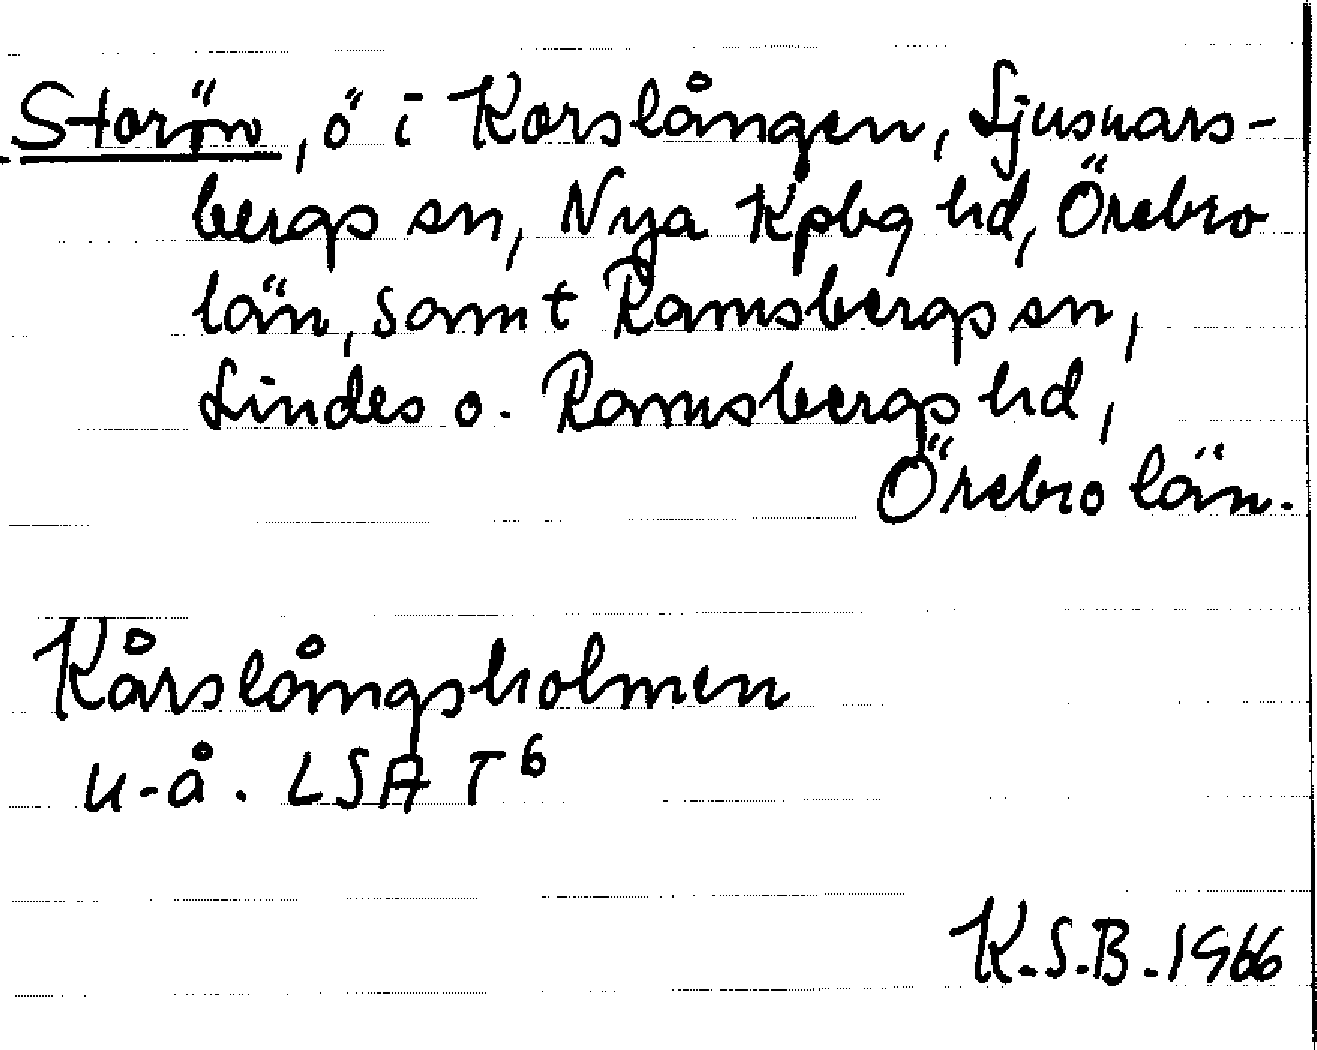 Storön, ö i Korslången, Ljusnars-
bergs sn, Nya Kpbg hd, Örebro
län, samt Ramsbergs sn,
Lindes o. Ramsbergs hd,
Örebro län.
Kårslångsholmen
u-å. LSA T6
K.S.B. 1966